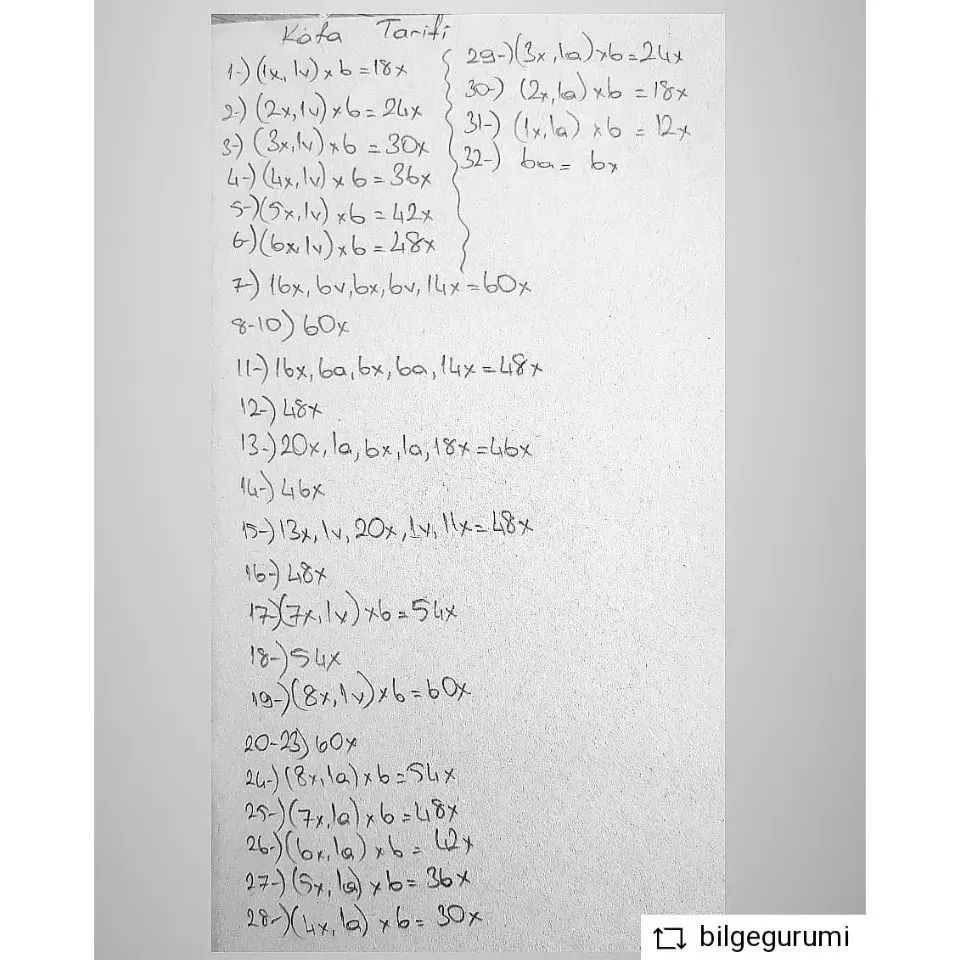 Kafa Tarifi
1-) (1x, 1v) x 6 = 18x
2-) (2x, 1v) x 6 = 24x
3-) (3x, 1v) x 6 = 30x
4-) (4x, 1v) x 6 = 36x
5-) (5x, 1v) x 6 = 42x
6-) (6x, 1v) x 6 = 48x
7-) 16x, 6v, 6x, 6v, 14x = 60x
8-10) 60x
11-) 16x, 6a, 6x, 6a, 14x = 48x
12-) 48x
13-) 20x, 1a, 6x, 1a, 18x = 46x
14-) 46x
15-) 13x, 1v, 20x, 1v, 11x = 48x
16-) 48x
17-) (7x, 1v) x 6 = 54x
18-) 54x
19-) (8x, 1v) x 6 = 60x
20-23) 60x
24-) (8x, 1a) x 6 = 54x
25-) (7x, 1a) x 6 = 48x
26-) (6x, 1a) x 6 = 42x
27-) (5x, 1a) x 6 = 36x
28-) (4x, 1a) x 6 = 30x
29-) (3x, 1a) x 6 = 24x
30-) (2x, 1a) x 6 = 18x
31-) (1x, 1a) x 6 = 12x
32-) 6a = 6x
bilgegurumi